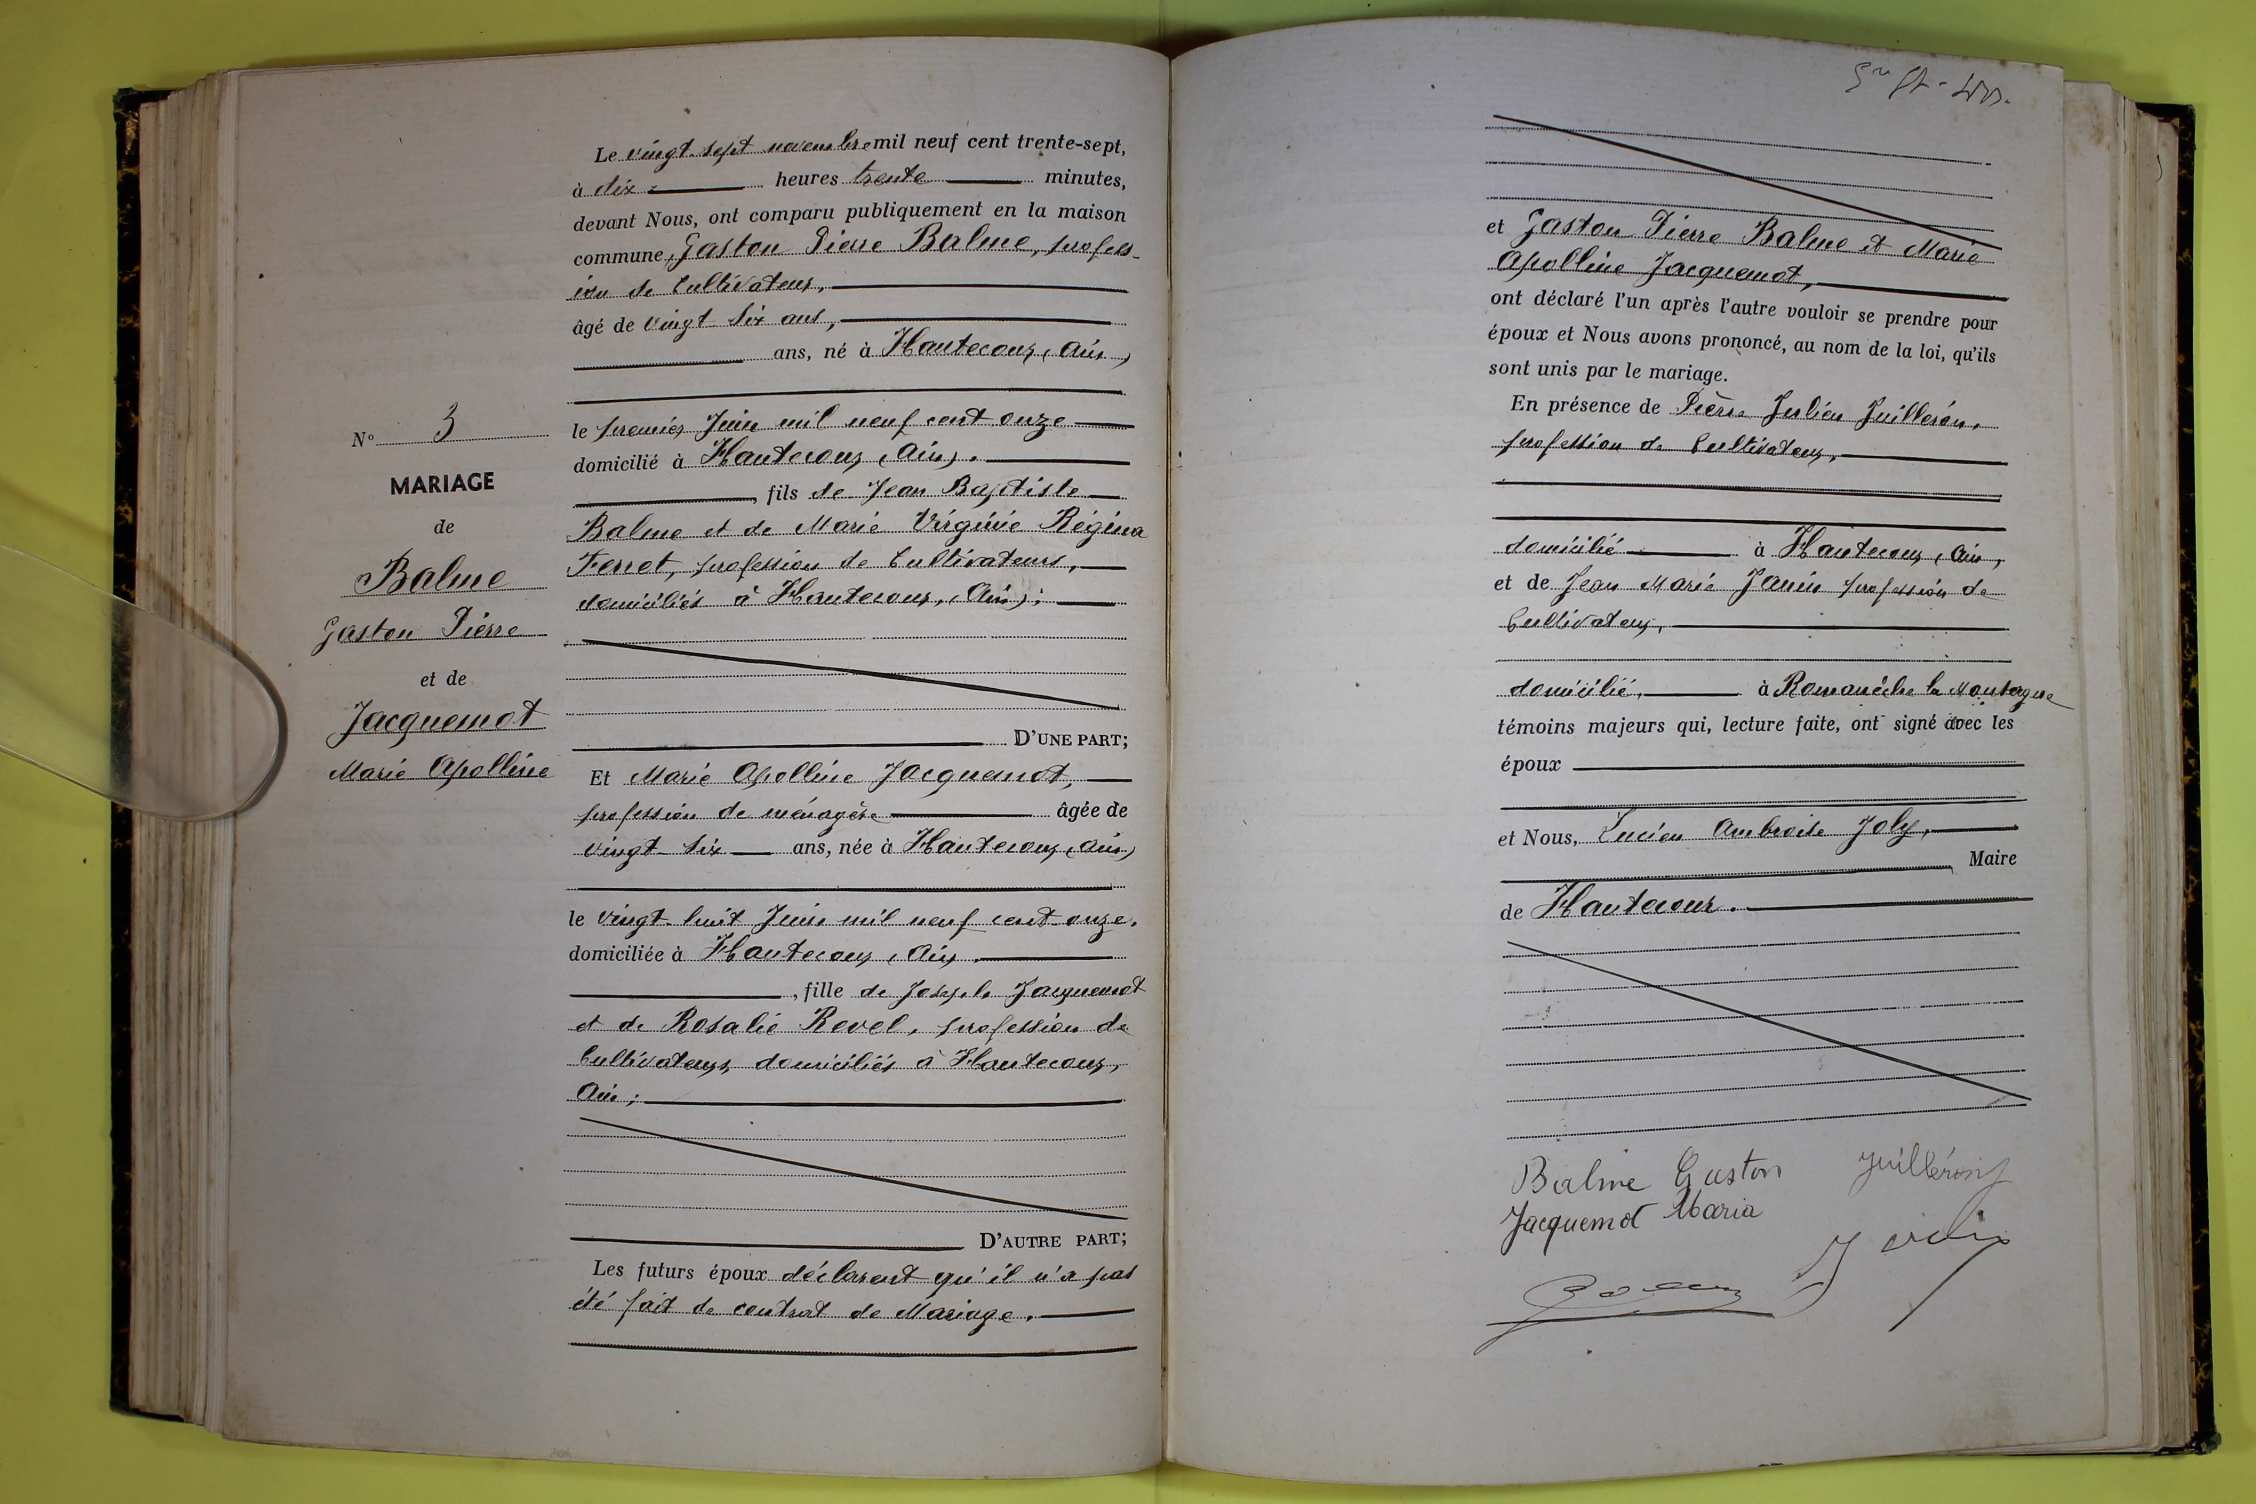 N° 3
MARIAGE
de
Balme
Gaston Pierre
et de
Jacquemot
Marie Apolline
Le vingt sept novembre mil neuf cent trente-sept,
à dix heures trente minutes,
devant Nous, ont comparu publiquement en la maison
commune, Gaston Pierre Balme, profess-
ion de Cultivateur,
âgé de vingt six ans,
ans, né à Hautecour, (Ain)
le premier Juin mil neuf cent onze
domicilié à Hautecour, (Ain).
, fils de Jean Baptiste
Balme et de Marie Virginie Régina
Ferret, profession de Cultivateurs,
domiciliés à Hautecour, (Ain);
D'UNE PART;
Et Marie Apolline Jacquemot,
profession de ménagère âgée de
vingt six ans, née à Hautecour, (Ain)
le vingt huit Juin mil neuf cent onze,
domiciliée à Hautecour, Ain,
, fille de Joseph Jacquemot
et de Rosalie Revel, profession de
Cultivateurs, domiciliés à Hautecour,
Ain;
D'AUTRE PART;
Les futurs époux déclarent qu'il n'a pas
été fait de contrat de Mariage.
et Gaston Pierre Balme et Marie
Apolline Jacquemot,
ont déclaré l'un après l'autre vouloir se prendre pour
époux et Nous avons prononcé, au nom de la loi, qu'ils
sont unis par le mariage.
En présence de Pierre Julien Juilleron,
profession de Cultivateur,
domicilié à Hautecour, Ain,
et de Jean Marie Janin profession de
Cultivateur,
domicilié, à Romanèche la Montagne
témoins majeurs qui, lecture faite, ont signé avec les
époux
et Nous, Lucien Ambroise Joly,
Maire
de Hautecour.
Balme Gaston Juilléron
Jacquemot Maria